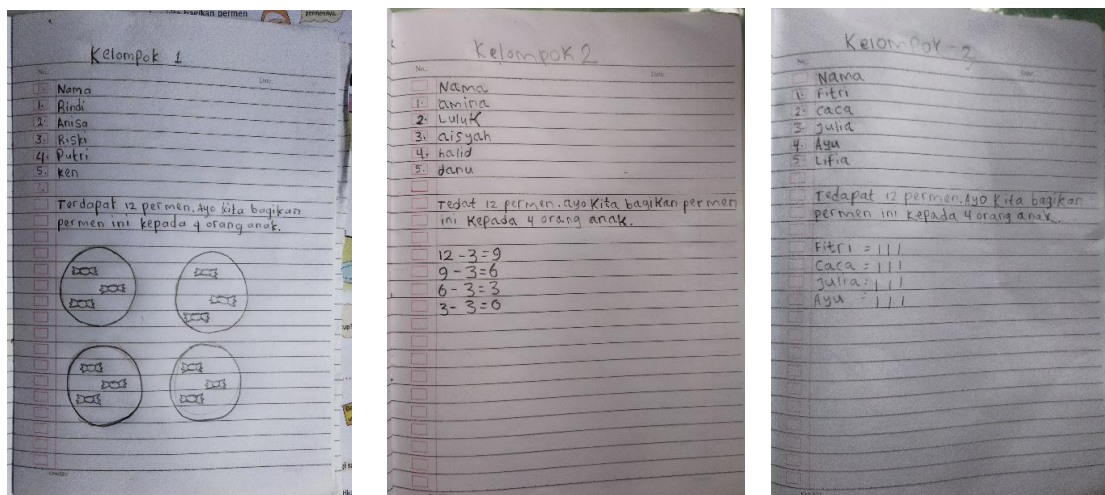 bagikan permen
permennya.
Kelompok 1
No.
Date:
Nama
1. Rindi
2. Anisa
3. Riski
4. Putri
5. Ken
Terdapat 12 permen. Ayo kita bagikan
permen ini kepada 4 orang anak.
Kelompok 2
No.
Date:
Nama
1. amina
2. Luluk
3. aisyah
4. halid
5. danu
Tedat 12 permen. ayo kita bagikan permen
ini kepada 4 orang anak.
12 - 3 = 9
9 - 3 = 6
6 - 3 = 3
3 - 3 = 0
Kelompok - 3
No.
Date:
Nama
1. Fitri
2. Caca
3. Julia
4. Ayu
5. Lifia
Tedapat 12 permen. Ayo kita bagikan
permen ini kepada 4 orang anak.
Fitri = | | |
Caca = | | |
Julia = | | |
Ayu = | | |